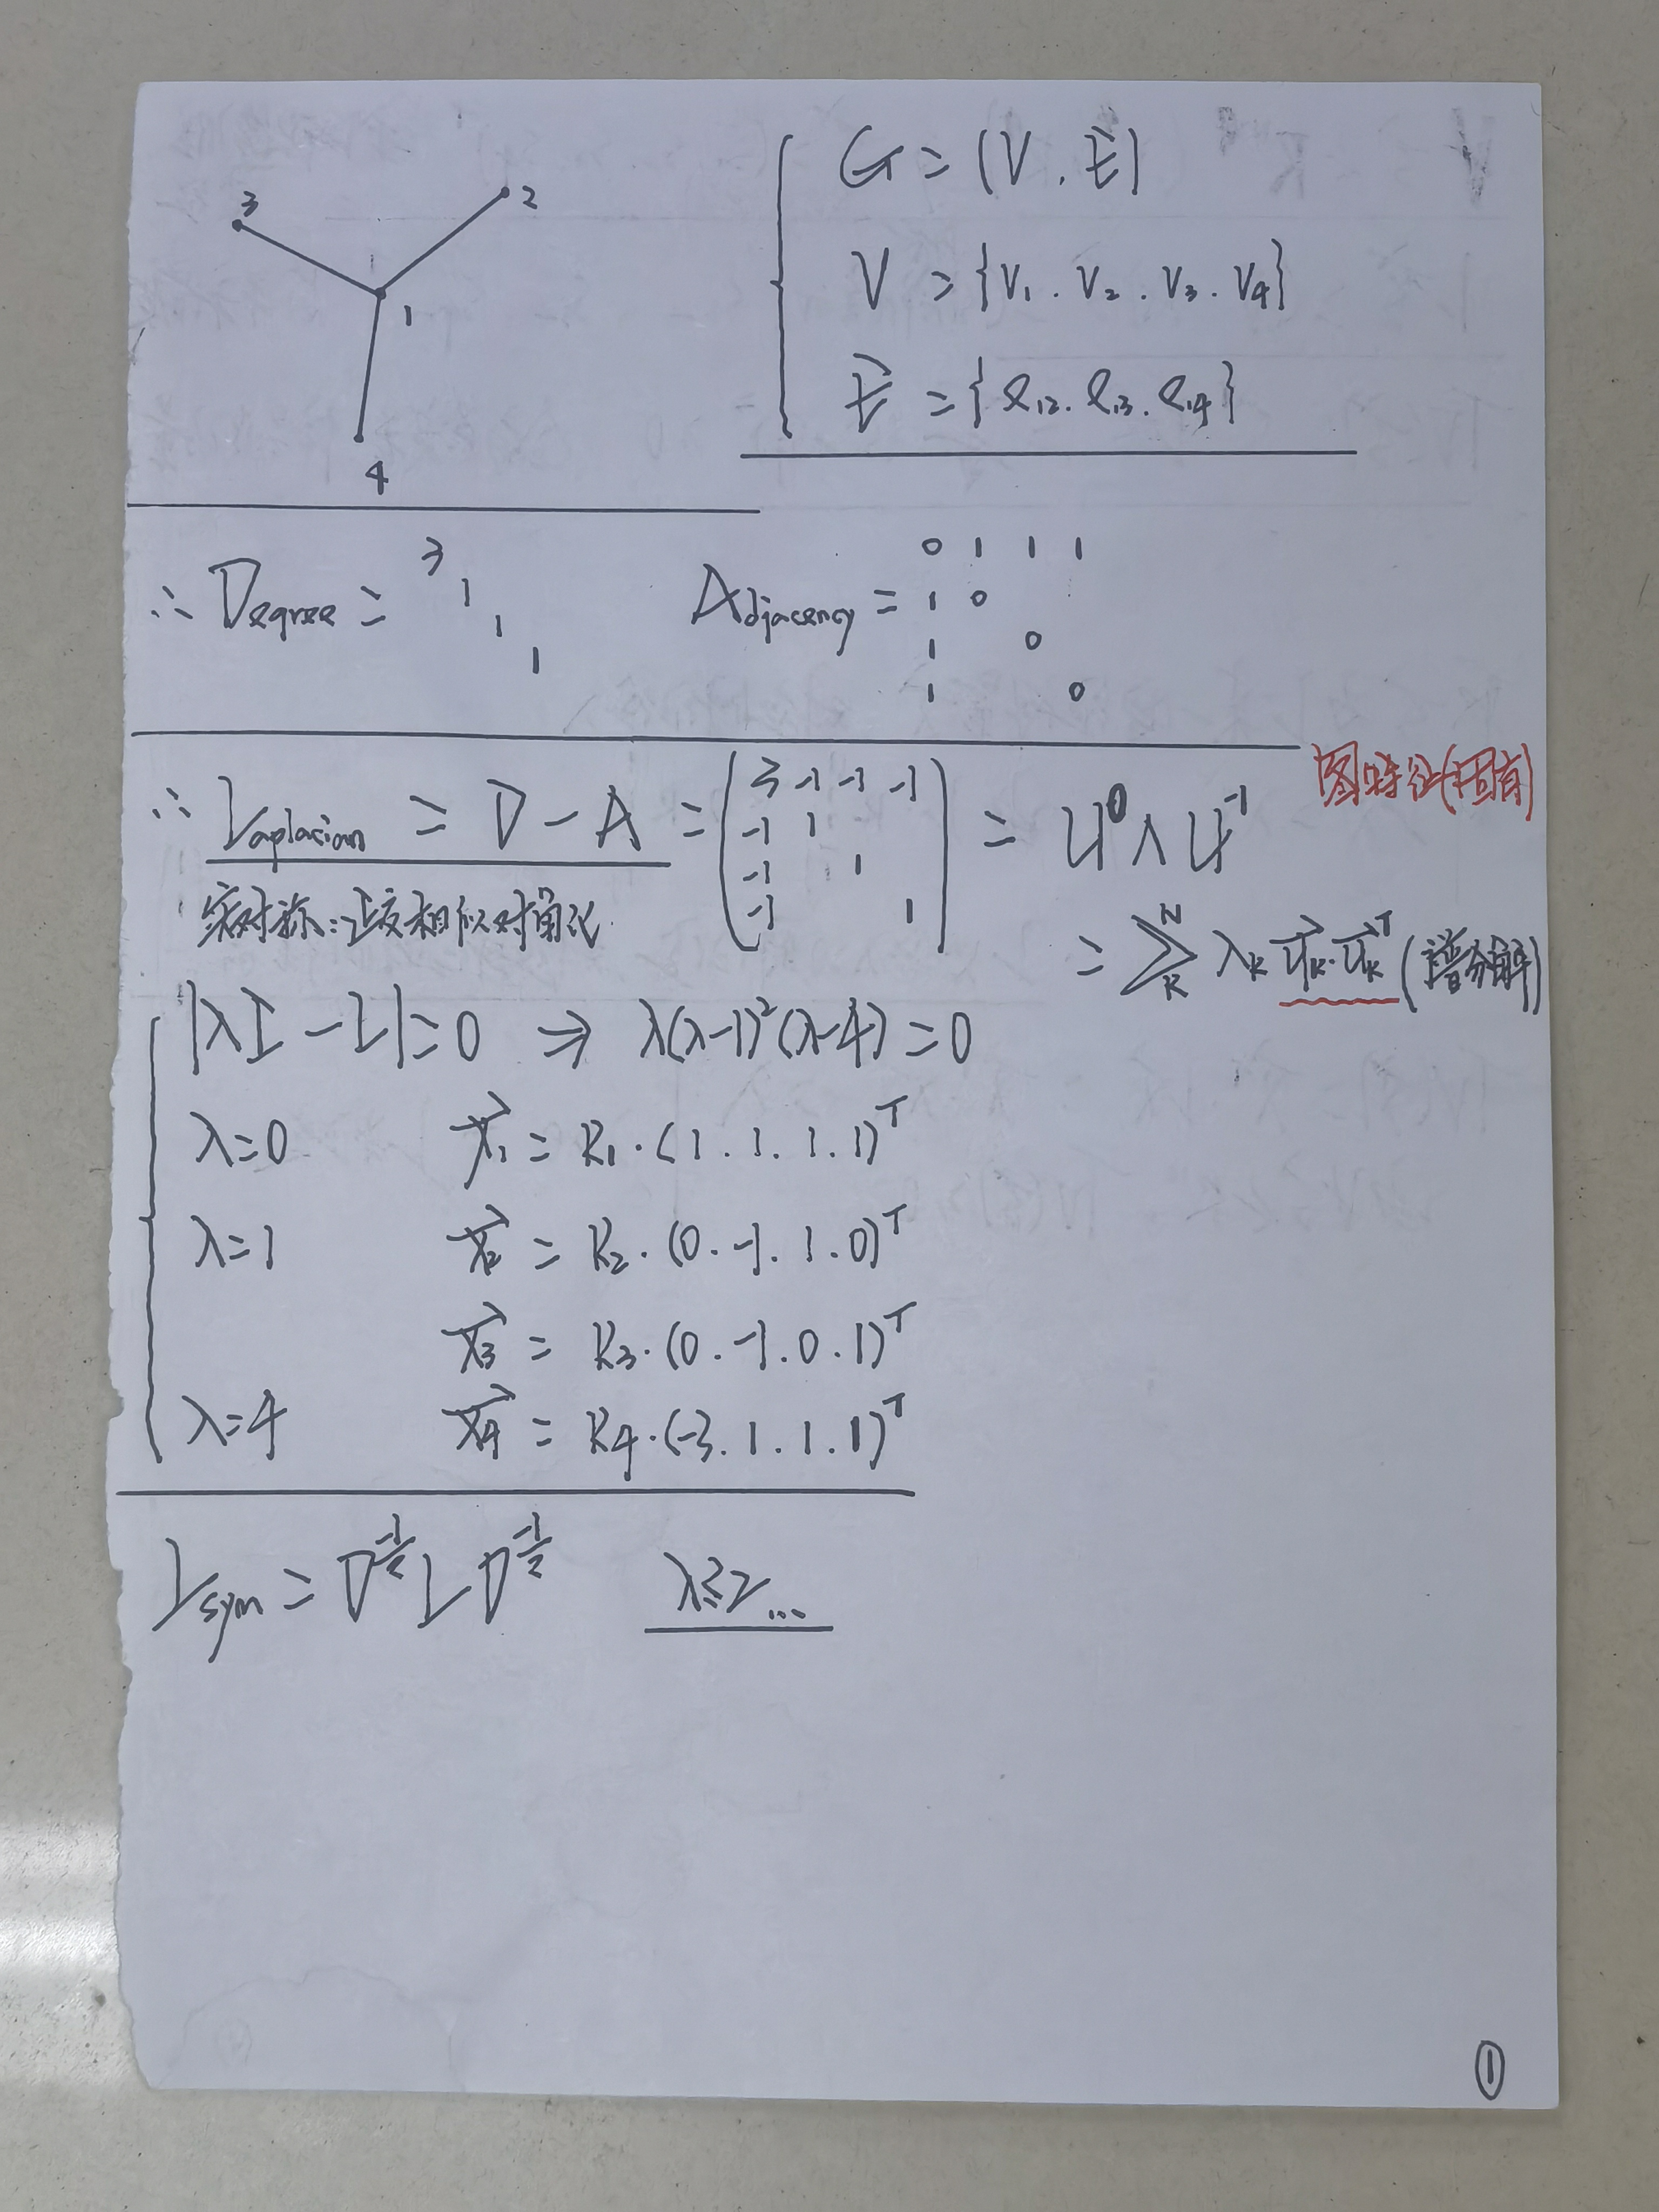 3 2
1
4
G = (V, E)
V = {V₁. V₂. V₃. V₄}
E = {e₁₂. e₁₃. e₁₄}
∴ Degree = 3 1 1 1
Adjacency =
0 1 1 1
1 0
1 0
1 0
图特征(固有)
∴ Laplacian = D - A = ( 3 -1 -1 -1
-1 1
-1 1
-1 1 ) = U Λ U⁻¹
实对称:正交相似对角化
= ∑ₖᴺ λₖ uₖ·uₖᵀ (谱分解)
|λI - L| = 0 ⇒ λ(λ-1)²(λ-4) = 0
λ=0 x₁ = k₁·(1. 1. 1. 1)ᵀ
λ=1 x₂ = k₂·(0. -1. 1. 0)ᵀ
x₃ = k₃·(0. -1. 0. 1)ᵀ
λ=4 x₄ = k₄·(-3. 1. 1. 1)ᵀ
Lsym = D^(-1/2) L D^(-1/2) λ≤2...
①